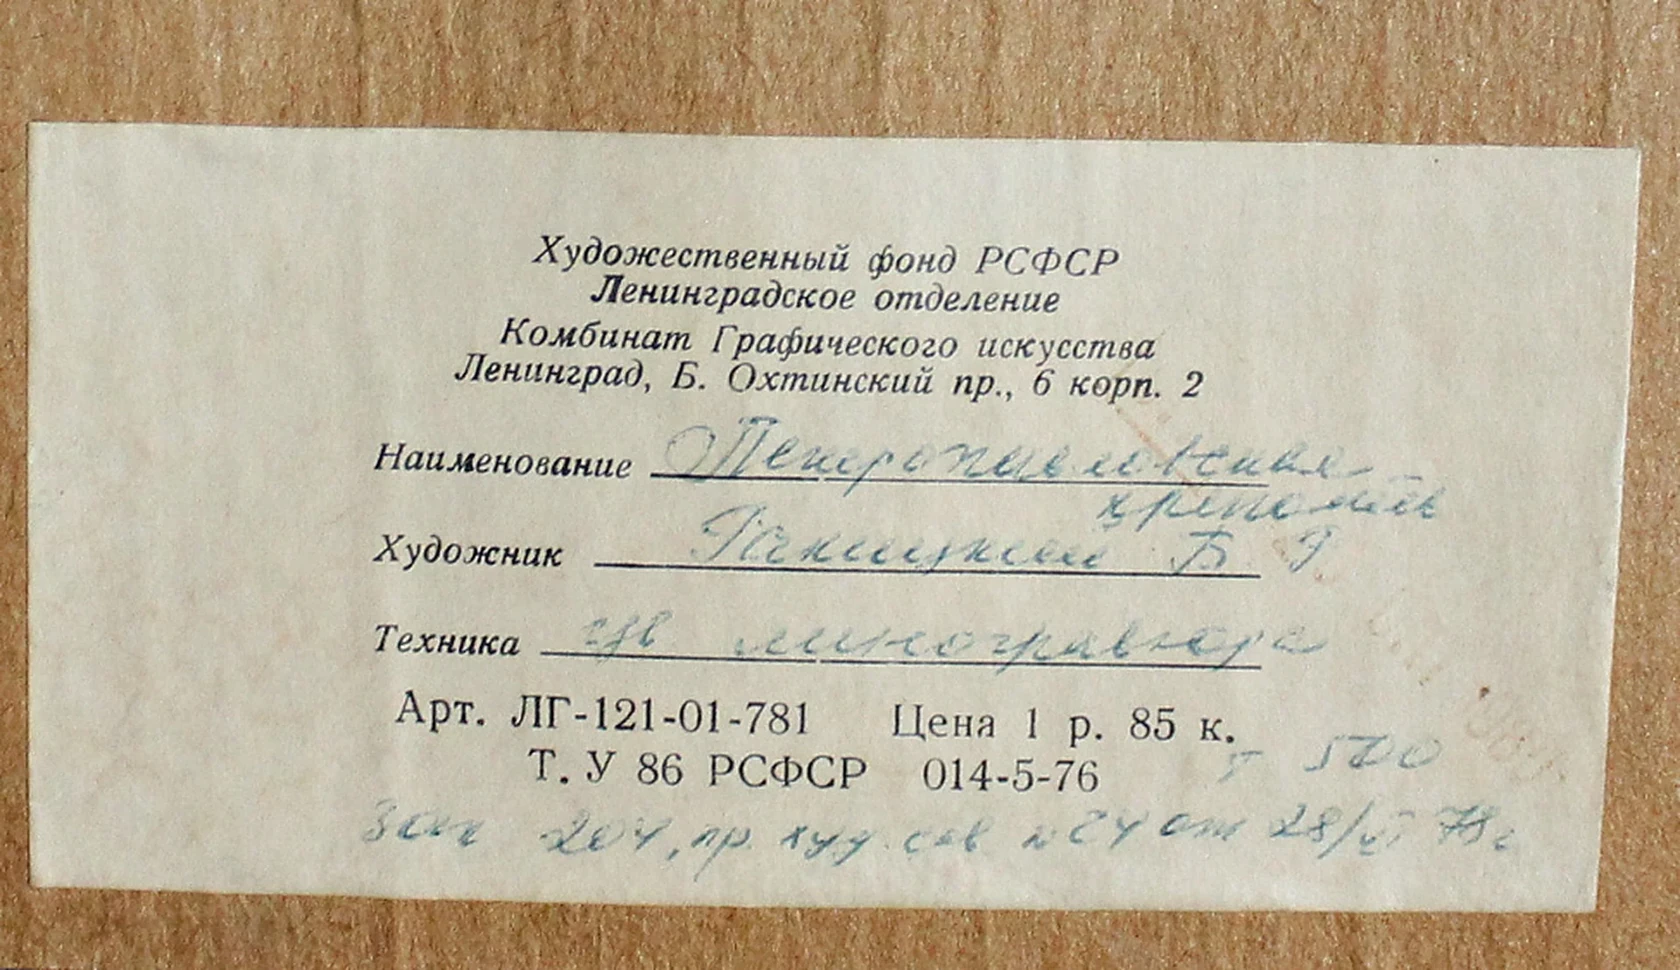 Художественный фонд РСФСР
Ленинградское отделение
Комбинат Графического искусства
Ленинград, Б. Охтинский пр., 6 корп. 2
Наименование Петропавловская
крепость
Художник Ракицкий Б Г
Техника цв линогравюра
Арт. ЛГ-121-01-781 Цена 1 р. 85 к.
Т. У 86 РСФСР 014-5-76 Т 500
Зак 204, пр. худ. сов № 24 от 28/VI 78 г